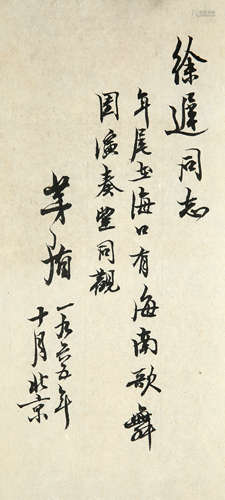 徐遲同志
年尾至海口有海南歌舞
團演奏望同觀
茅盾
一九六五年
十月北京